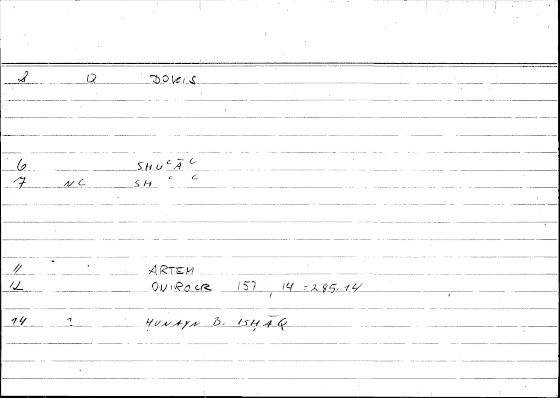 8 Q DOKIS
6 SHUᶜĀᶜ
7 NC SHᶜᶜ
11 ARTEM
12 ONIROCR 157, 14-285.14
14 ? ḤUNAYN B. ISḤĀQ